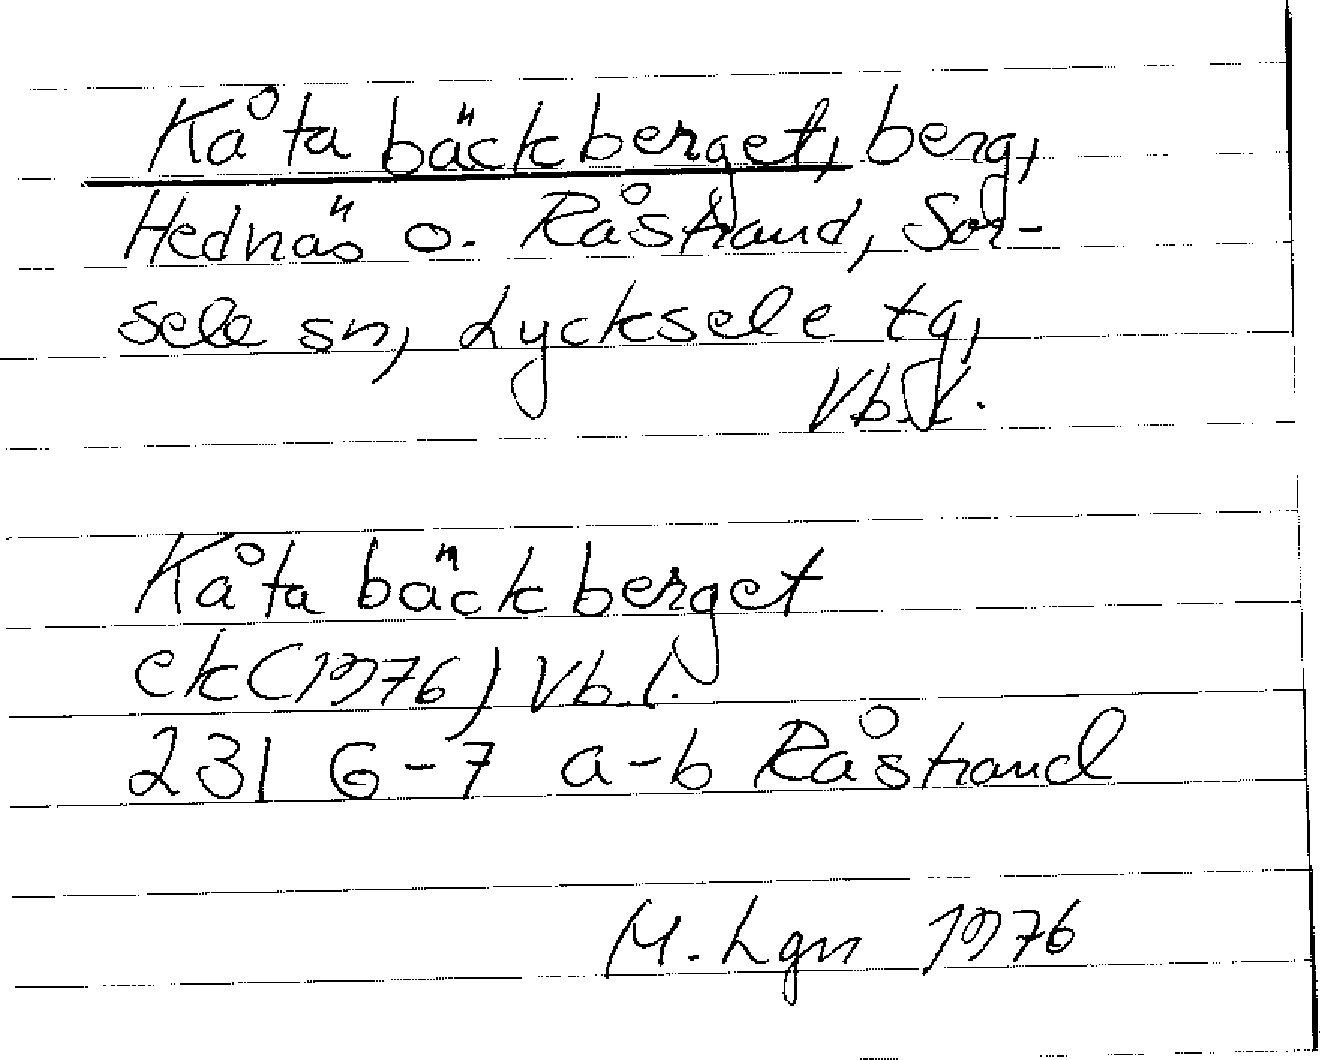 Kåtabäckberget, berg,
Hednäs o. Råstrand, Sor-
sele sn, Lycksele tg,
Vb.l.
Kåtabäckberget
ek (1976) Vb.l.
23I 6-7 a-b Råstrand
M. Lgn 1976